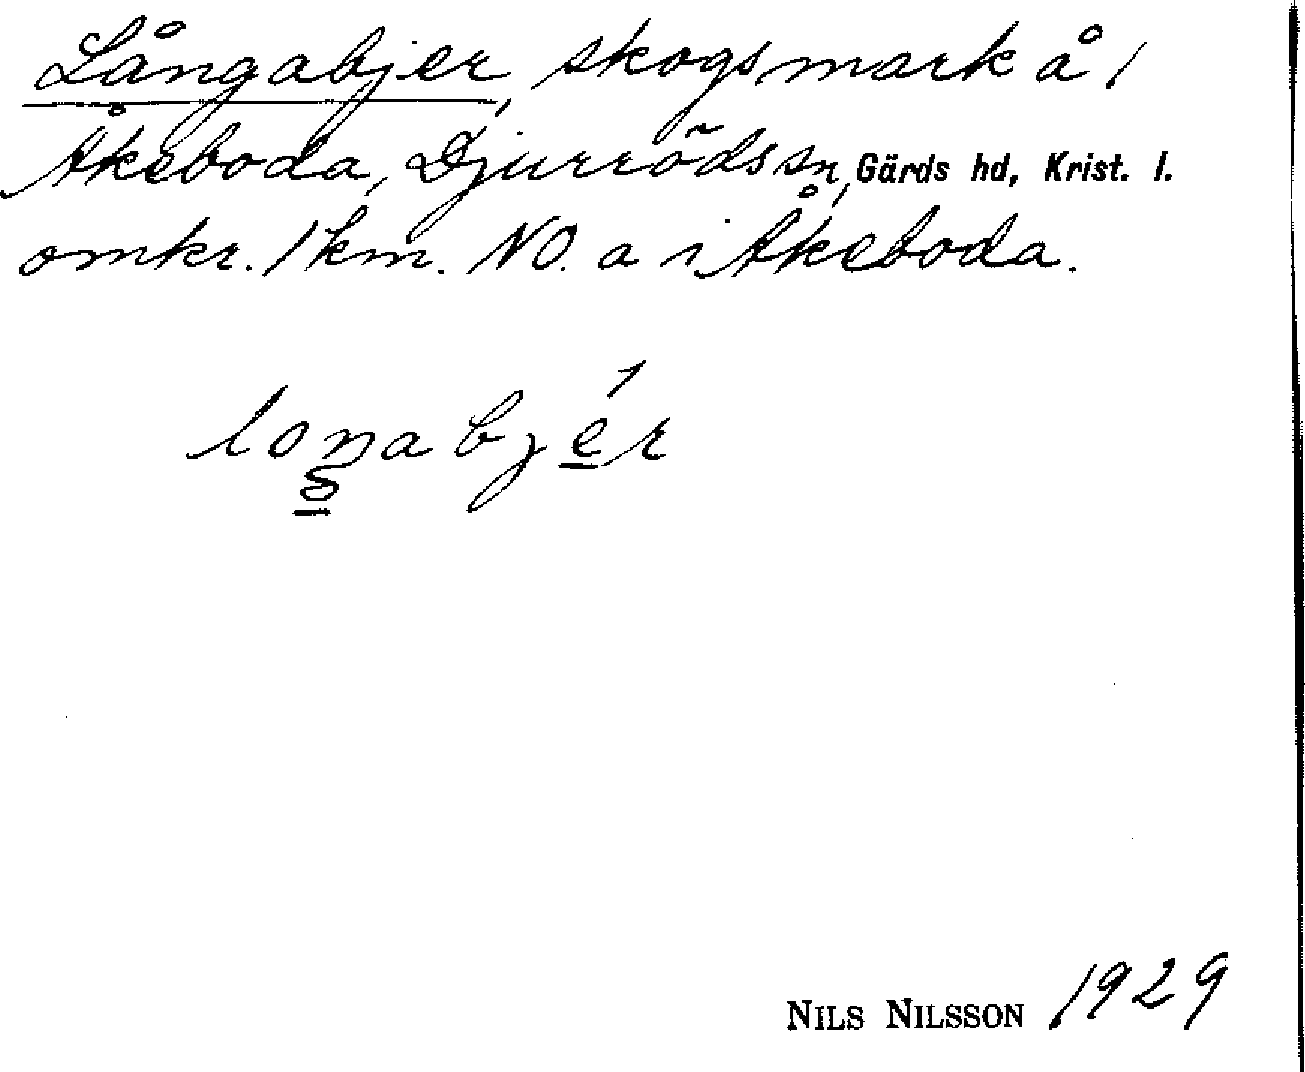 Långabjer, skogsmark å 1
Åkeboda, Djurröds sn, Gärds hd, Krist. l.
omkr. 1 km. NO. a i Åkeboda.
loŋabjér
NILS NILSSON 1929